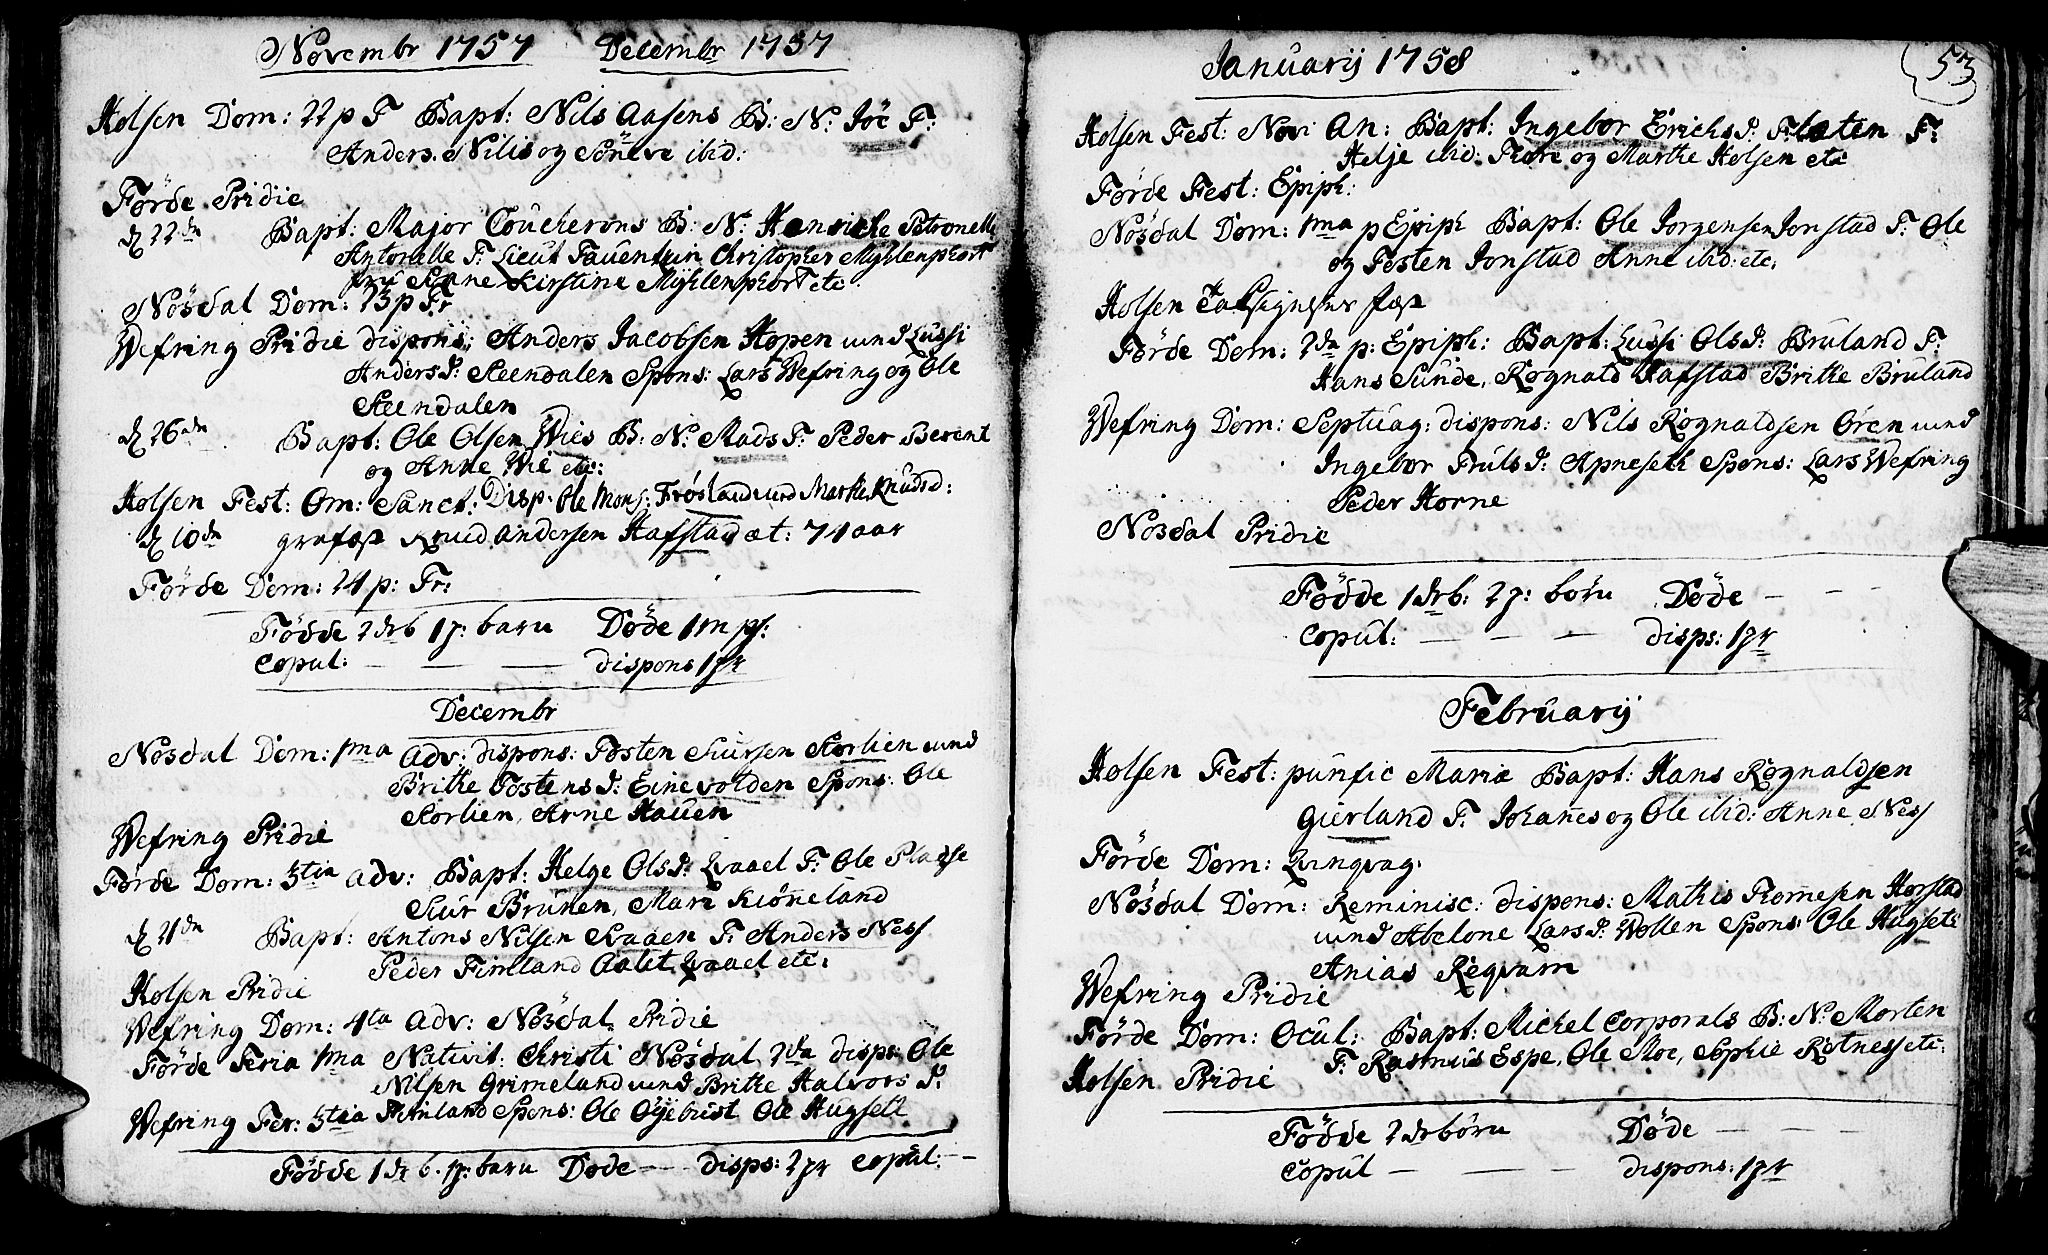 Novembr 1757 Decembr 1757
Holsen Dom: 22 p T Bapt: Nils Aasens B: N: Joc F:
Anders Nilis og Sönneve ibid:
Förde Pridie
d 22de Bapt: Major Coucherons B: N: Henriche Petronelle
Antonelle F: Lieut Fauentin Christopher Myhlenphort
fru Anne Kirstine Myhlenphort etc
Nösdal Dom: 23 p Tr
Wefring Pridie dispons: Anders Jacobsen Hopen und Lussi
Anders d: Steendalen Spons: Lars Wefring og Ole
Steendalen
d 26de Bapt: Ole Olsen Wies B: N: Mads F: Peder Berent
og Anne Wie etc:
Holsen Fest: Om: Sanct: Disp: Ole Mons: Frösland und Marthe Knudsd:
d 10de grafæst Knud Andersen Hafstad æt: 74 aar
Förde Dom: 24 p: Tr:
Födde 2 drb 1 p: barn Döde 1 m ps:
Copul: — — — dispons 1 pr
Decembr
Nösdal Dom: 1ma Adv: dispons: Tosten Siursen Storlien und
Brithe Tostens d: Einevolden Spons: Ole
Storlien, Arne Hauen
Wefring Pridie
Förde Dom: 3tia Adv: Bapt: Helge Ols d: Qvaael F: Ole Platse
Siur Bruken, Mari Kiöneland
d 21de Bapt: Antons Nilsen Qvaaen F: Anders Ness
Peder Fimland Aalet Qvaael etc:
Holsen Pridie
Wefring Dom: 4ta Adv: Nösdal Pridie
Förde Feria 1ma Nativit: Christi Nösdal 2da disps: Ole
Nilsen Grimeland und Brithe Halvors d:
Wefring Fer: 3tia Heinland Spons: Ole Oyebust Ole Hugset
Födde 1 dr b. 1 p: barn Döde — — disps: 2 pr Copul: —
53
Januarij 1758
Holsen Fest: Novi An: Bapt: Ingebor Erichs d: Flaten F:
Helje ibid: Thore og Marthe Holsen etc
Förde Fest: Epiph:
Nösdal Dom: 1ma p Epiph Bapt: Ole Jorgensen Jonstad F: Ole
og Tosten Jonstad Anne ibid: etc:
Holsen Taksigelses fæst
Förde Dom: 2da p: Epiph: Bapt: Lussi Ols d: Bruland F:
Hans Sunde, Rognald Hafstad Brithe Bruland
Wefring Dom: Septuag: dispons: Nils Rognaldsen Ören und
Ingebor Truls d: Apneseth Spons: Lars Wefring
Peder Horne
Nösdal Pridie
Födde 1 drb: 2 p: börn Döde — — —
Copul: — — — disps: 1 pr
Februarij
Holsen Fest: purific Mariæ Bapt: Hans Rognaldsen
Gierland F: Johanes og Ole ibid: Anne Ness
Förde Dom: Qvinqvag:
Nösdal Dom: Reminisc: dispons: Mathis Tomesen Horstad
und Abelone Lars d: Wollen Spons: Ole Hugset
Anias Reqvam
Wefring Pridie
Förde Dom: Ocul: Bapt: Michel Corporals B: N: Morten
F: Rasmus Espe, Ole Moe, Sophie Rotness etc:
Holsen Pridie
Födde 2 dr börn Döde — — —
Copul — — — dispons: 1 pr